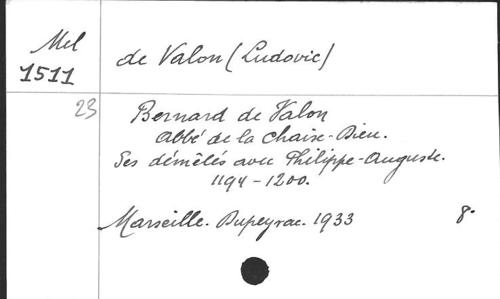 Mel
1511
de Valon (Ludovic)
23
Bernard de Valon
Abbé de la Chaise-Dieu.
Ses démêlés avec Philippe-Auguste.
1194-1200.
Marseille. Dupeyrac. 1933 8º